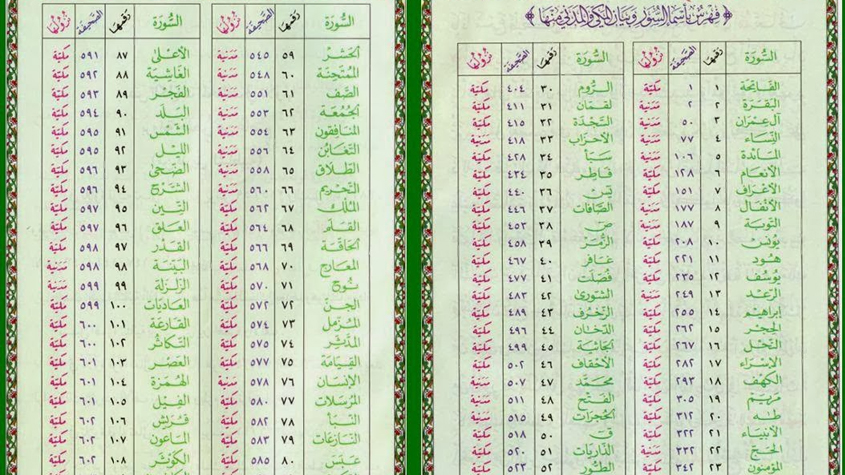 فهرس بأسماء السور وبيان المكي والمدني منها
السورة رقمها الصحيفة نزولها
الفاتحة ١ ١ مكية
البقرة ٢ ٢ مدنية
آل عمران ٣ ٥٠ مدنية
النساء ٤ ٧٧ مدنية
المائدة ٥ ١٠٦ مدنية
الأنعام ٦ ١٢٨ مكية
الأعراف ٧ ١٥١ مكية
الأنفال ٨ ١٧٧ مدنية
التوبة ٩ ١٨٧ مدنية
يونس ١٠ ٢٠٨ مكية
هود ١١ ٢٢١ مكية
يوسف ١٢ ٢٣٥ مكية
الرعد ١٣ ٢٤٩ مدنية
إبراهيم ١٤ ٢٥٥ مكية
الحجر ١٥ ٢٦٢ مكية
النحل ١٦ ٢٦٧ مكية
الإسراء ١٧ ٢٨٢ مكية
الكهف ١٨ ٢٩٣ مكية
مريم ١٩ ٣٠٥ مكية
طه ٢٠ ٣١٢ مكية
الأنبياء ٢١ ٣٢٢ مكية
الحج ٢٢ ٣٣٢ مدنية
المؤمنون ٢٣ ٣٤٢ مكية
السورة رقمها الصحيفة نزولها
الروم ٣٠ ٤٠٤ مكية
لقمان ٣١ ٤١١ مكية
السجدة ٣٢ ٤١٥ مكية
الأحزاب ٣٣ ٤١٨ مدنية
سبأ ٣٤ ٤٢٨ مكية
فاطر ٣٥ ٤٣٤ مكية
يس ٣٦ ٤٤٠ مكية
الصافات ٣٧ ٤٤٦ مكية
ص ٣٨ ٤٥٣ مكية
الزمر ٣٩ ٤٥٨ مكية
غافر ٤٠ ٤٦٧ مكية
فصلت ٤١ ٤٧٧ مكية
الشورى ٤٢ ٤٨٣ مكية
الزخرف ٤٣ ٤٨٩ مكية
الدخان ٤٤ ٤٩٦ مكية
الجاثية ٤٥ ٤٩٩ مكية
الأحقاف ٤٦ ٥٠٢ مكية
محمد ٤٧ ٥٠٧ مدنية
الفتح ٤٨ ٥١١ مدنية
الحجرات ٤٩ ٥١٥ مدنية
ق ٥٠ ٥١٨ مكية
الذاريات ٥١ ٥٢٠ مكية
الطور ٥٢ ٥٢٣ مكية
السورة رقمها الصحيفة نزولها
الحشر ٥٩ ٥٤٥ مدنية
الممتحنة ٦٠ ٥٤٨ مدنية
الصف ٦١ ٥٥١ مدنية
الجمعة ٦٢ ٥٥٣ مدنية
المنافقون ٦٣ ٥٥٤ مدنية
التغابن ٦٤ ٥٥٦ مدنية
الطلاق ٦٥ ٥٥٨ مدنية
التحريم ٦٦ ٥٦٠ مدنية
الملك ٦٧ ٥٦٢ مكية
القلم ٦٨ ٥٦٤ مكية
الحاقة ٦٩ ٥٦٦ مكية
المعارج ٧٠ ٥٦٨ مكية
نوح ٧١ ٥٧٠ مكية
الجن ٧٢ ٥٧٢ مكية
المزمل ٧٣ ٥٧٤ مكية
المدثر ٧٤ ٥٧٥ مكية
القيامة ٧٥ ٥٧٧ مكية
الإنسان ٧٦ ٥٧٨ مدنية
المرسلات ٧٧ ٥٨٠ مكية
النبأ ٧٨ ٥٨٢ مكية
النازعات ٧٩ ٥٨٣ مكية
عبس ٨٠ ٥٨٥ مكية
السورة رقمها الصحيفة نزولها
الأعلى ٨٧ ٥٩١ مكية
الغاشية ٨٨ ٥٩٢ مكية
الفجر ٨٩ ٥٩٣ مكية
البلد ٩٠ ٥٩٤ مكية
الشمس ٩١ ٥٩٥ مكية
الليل ٩٢ ٥٩٥ مكية
الضحى ٩٣ ٥٩٦ مكية
الشرح ٩٤ ٥٩٦ مكية
التين ٩٥ ٥٩٧ مكية
العلق ٩٦ ٥٩٧ مكية
القدر ٩٧ ٥٩٨ مكية
البينة ٩٨ ٥٩٨ مدنية
الزلزلة ٩٩ ٥٩٩ مدنية
العاديات ١٠٠ ٥٩٩ مكية
القارعة ١٠١ ٦٠٠ مكية
التكاثر ١٠٢ ٦٠٠ مكية
العصر ١٠٣ ٦٠١ مكية
الهمزة ١٠٤ ٦٠١ مكية
الفيل ١٠٥ ٦٠١ مكية
قريش ١٠٦ ٦٠٢ مكية
الماعون ١٠٧ ٦٠٢ مكية
الكوثر ١٠٨ ٦٠٢ مكية